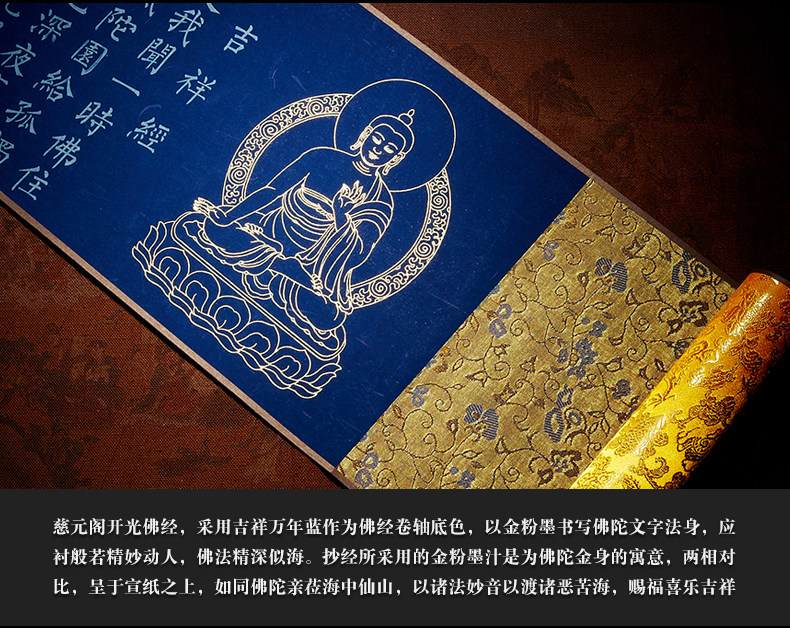 吉祥經
我聞一時佛住
陀園給孤
深夜
慈元阁开光佛经，采用吉祥万年蓝作为佛经卷轴底色，以金粉墨书写佛陀文字法身，应
衬般若精妙动人，佛法精深似海。抄经所采用的金粉墨汁是为佛陀金身的寓意，两相对
比，呈于宣纸之上，如同佛陀亲莅海中仙山，以诸法妙音以渡诸恶苦海，赐福喜乐吉祥